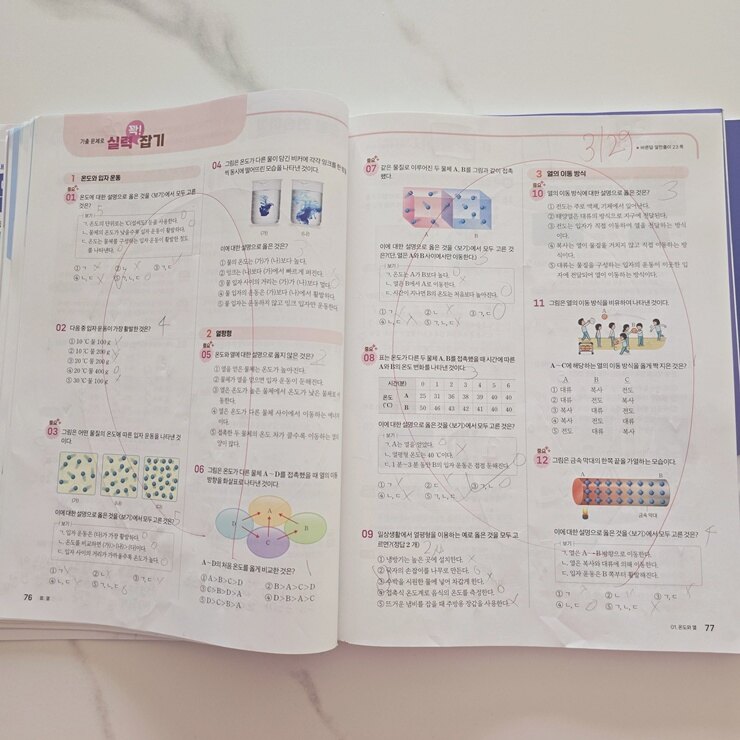 기출 문제로 실력 꽉! 잡기
1 온도와 입자 운동
중요
01 온도에 대한 설명으로 옳은 것을 〈보기〉에서 모두 고른
것은?
보기
ㄱ. 온도의 단위로는 ℃(섭씨도) 등을 사용한다.
ㄴ. 물체의 온도가 낮을수록 입자 운동이 활발하다.
ㄷ. 온도는 물체를 구성하는 입자 운동이 활발한 정도
를 나타낸다.
① ㄱ ② ㄴ ③ ㄱ, ㄷ
④ ㄴ, ㄷ ⑤ ㄱ, ㄴ, ㄷ
02 다음 중 입자 운동이 가장 활발한 것은?
4
① 10 ℃ 물 100 g
② 10 ℃ 물 200 g
③ 20 ℃ 물 200 g
④ 20 ℃ 물 400 g
⑤ 30 ℃ 물 100 g
중요
03 그림은 어떤 물질의 온도에 따른 입자 운동을 나타낸 것
이다.
(가) (나) (다)
이에 대한 설명으로 옳은 것을 〈보기〉에서 모두 고른 것은?
5
보기
ㄱ. 입자 운동은 (다)가 가장 활발하다.
ㄴ. 온도를 비교하면 (가)>(나)>(다)이다.
ㄷ. 입자 사이의 거리가 가까울수록 온도가 높다.
① ㄱ ② ㄴ ③ ㄱ, ㄷ
④ ㄴ, ㄷ ⑤ ㄱ, ㄴ, ㄷ
76
04 그림은 온도가 다른 물이 담긴 비커에 각각 잉크를 한 방울
씩 동시에 떨어뜨린 모습을 나타낸 것이다.
(가) (나)
이에 대한 설명으로 옳은 것은?
① 물의 온도는 (가)가 (나)보다 높다.
② 잉크는 (나)보다 (가)에서 빠르게 퍼진다.
③ 물 입자 사이의 거리는 (가)가 (나)보다 멀다.
④ 물 입자의 운동은 (가)보다 (나)에서 활발하다.
⑤ 물 입자는 운동하지 않고 잉크 입자만 운동한다.
2 열평형
중요
05 온도와 열에 대한 설명으로 옳지 않은 것은?
2
① 열을 얻은 물체는 온도가 높아진다.
② 물체가 열을 얻으면 입자 운동이 둔해진다.
③ 열은 온도가 높은 물체에서 온도가 낮은 물체로 이
동한다.
④ 열은 온도가 다른 물체 사이에서 이동하는 에너지
이다.
⑤ 접촉한 두 물체의 온도 차가 클수록 이동하는 열의
양이 많다.
06 그림은 온도가 다른 물체 A~D를 접촉했을 때 열의 이동
방향을 화살표로 나타낸 것이다.
A
D B
C
A~D의 처음 온도를 옳게 비교한 것은?
① A>B>C>D ② B>A>C>D
③ C>B>D>A ④ D>B>A>C
⑤ D>C>B>A
3/29
중요
07 같은 물질로 이루어진 두 물체 A, B를 그림과 같이 접촉
했다.
A B
이에 대한 설명으로 옳은 것을 〈보기〉에서 모두 고른 것
은?(단, 열은 A와 B 사이에서만 이동한다.)
3
보기
ㄱ. 온도는 A가 B보다 높다.
ㄴ. 열은 B에서 A로 이동한다.
ㄷ. 시간이 지나면 B의 온도는 처음보다 높아진다.
① ㄱ ② ㄴ ③ ㄱ, ㄷ
④ ㄴ, ㄷ ⑤ ㄱ, ㄴ, ㄷ
중요
08 표는 온도가 다른 두 물체 A, B를 접촉했을 때 시간에 따른
A와 B의 온도 변화를 나타낸 것이다.
3
시간(분) 0 1 2 3 4 5 6
온도(℃) A 25 31 36 38 39 40 40
B 50 46 43 42 41 40 40
이에 대한 설명으로 옳은 것을 〈보기〉에서 모두 고른 것은?
보기
ㄱ. A는 열을 얻었다.
ㄴ. 열평형 온도는 40 ℃이다.
ㄷ. 1분~3분 동안 B의 입자 운동은 점점 둔해진다.
① ㄱ ② ㄴ ③ ㄱ, ㄷ
④ ㄴ, ㄷ ⑤ ㄱ, ㄴ, ㄷ
09 일상생활에서 열평형을 이용하는 예로 옳은 것을 모두 고
르면?(정답 2개)
① 냉방기는 높은 곳에 설치한다.
② 국자의 손잡이를 나무로 만든다.
③ 수박을 시원한 물에 넣어 차갑게 한다.
④ 접촉식 온도계로 음식의 온도를 측정한다.
⑤ 뜨거운 냄비를 잡을 때 주방용 장갑을 사용한다.
• 바른답·알찬풀이 23쪽
3 열의 이동 방식
중요
10 열의 이동 방식에 대한 설명으로 옳은 것은?
3
① 전도는 주로 액체, 기체에서 일어난다.
② 태양열은 대류의 방식으로 지구에 전달된다.
③ 전도는 입자가 직접 이동하여 열을 전달하는 방식
이다.
④ 복사는 열이 물질을 거치지 않고 직접 이동하는 방
식이다.
⑤ 대류는 물질을 구성하는 입자의 운동이 이웃한 입
자에 전달되어 열이 이동하는 방식이다.
11 그림은 열의 이동 방식을 비유하여 나타낸 것이다.
A~C에 해당하는 열의 이동 방식을 옳게 짝 지은 것은?
A B C
① 대류 복사 전도
② 대류 전도 복사
③ 복사 대류 전도
④ 복사 전도 대류
⑤ 전도 대류 복사
중요
12 그림은 금속 막대의 한쪽 끝을 가열하는 모습이다.
A B
금속 막대
이에 대한 설명으로 옳은 것을 〈보기〉에서 모두 고른 것은?
4
보기
ㄱ. 열은 A→B 방향으로 이동한다.
ㄴ. 열은 복사와 대류에 의해 이동한다.
ㄷ. 입자 운동은 B 쪽부터 활발해진다.
① ㄱ ② ㄴ ③ ㄱ, ㄷ
④ ㄴ, ㄷ ⑤ ㄱ, ㄴ, ㄷ
01. 온도와 열 77